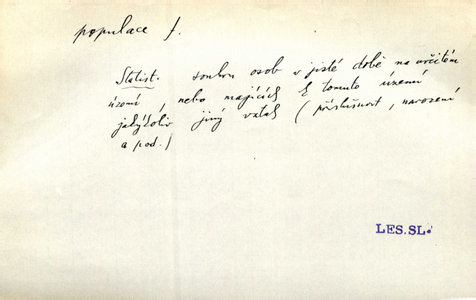 populace f.
Statist. souhrn osob v jisté době na určitém
území, nebo majících k tomuto území
jakýkoliv jiný vztah (příslušnost, narození
a pod.)
LES. SL.